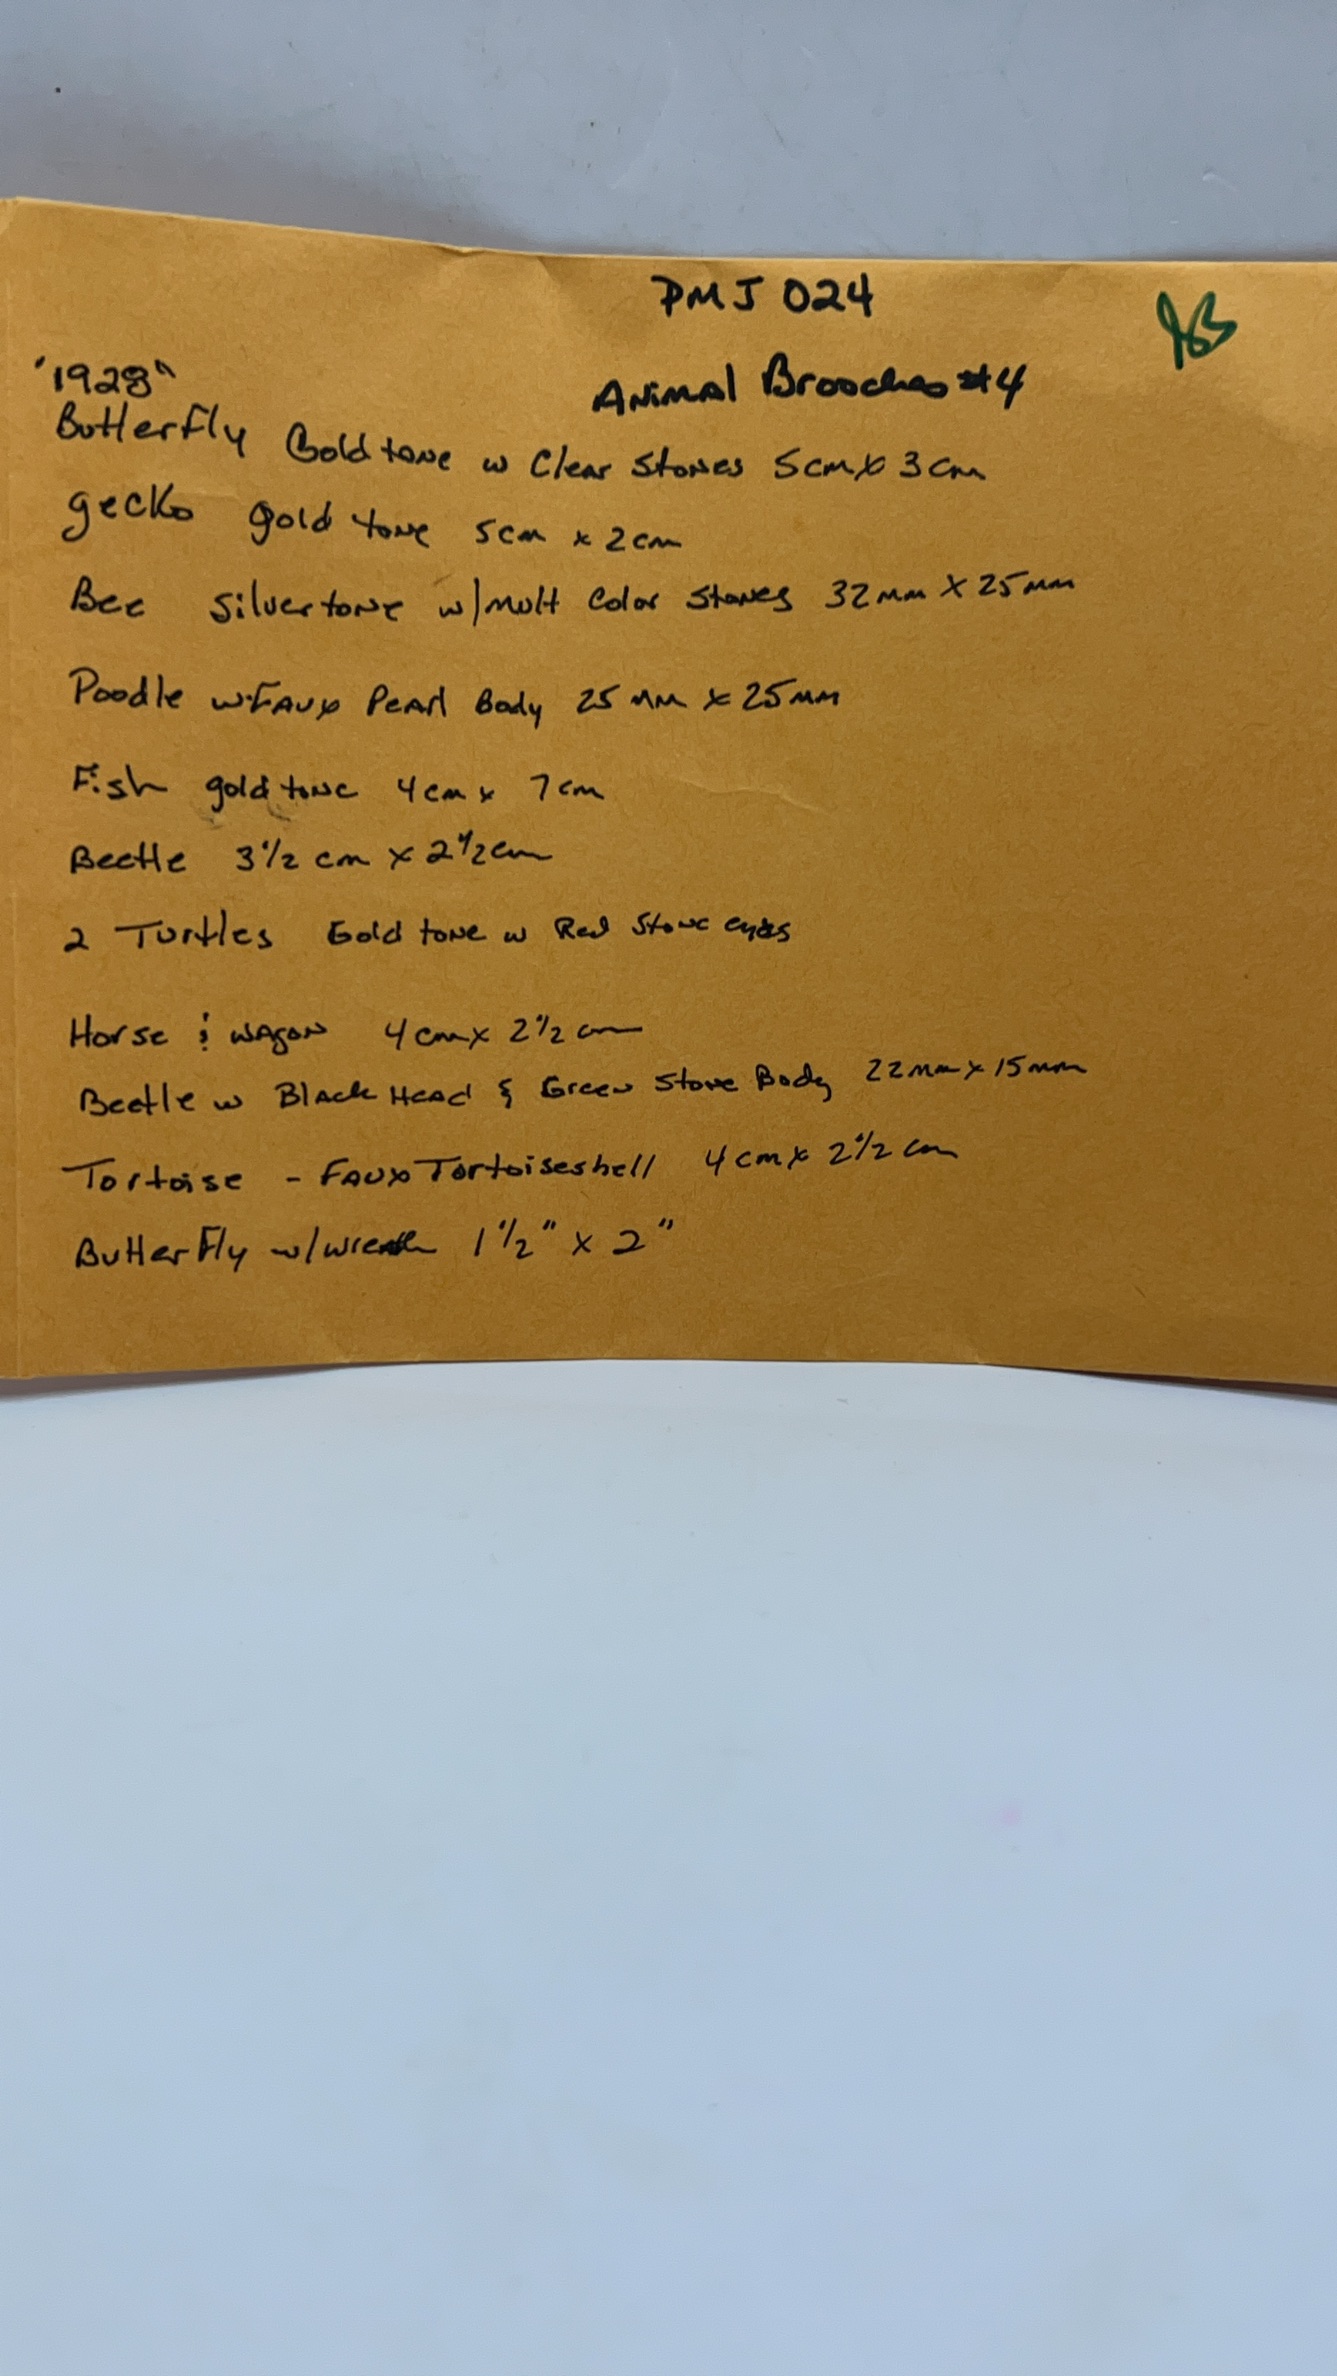 PMJ 024
"1928"
Animal Brooches #4
Butterfly Gold tone w Clear Stones 5cm x 3cm
gecko gold tone 5cm x 2cm
Bee Silvertone w/mult Color Stones 32mm x 25mm
Poodle w Faux Pearl Body 25mm x 25mm
Fish gold tone 4cm x 7cm
Beetle 3 1/2 cm x 2 1/2 cm
2 Turtles Gold tone w Red Stone eyes
Horse & wagon 4cm x 2 1/2 cm
Beetle w Black Head & Green Stone Body 22mm x 15mm
Tortoise - Faux Tortoiseshell 4cm x 2 1/2 cm
Butterfly w/wreath 1 1/2" x 2"